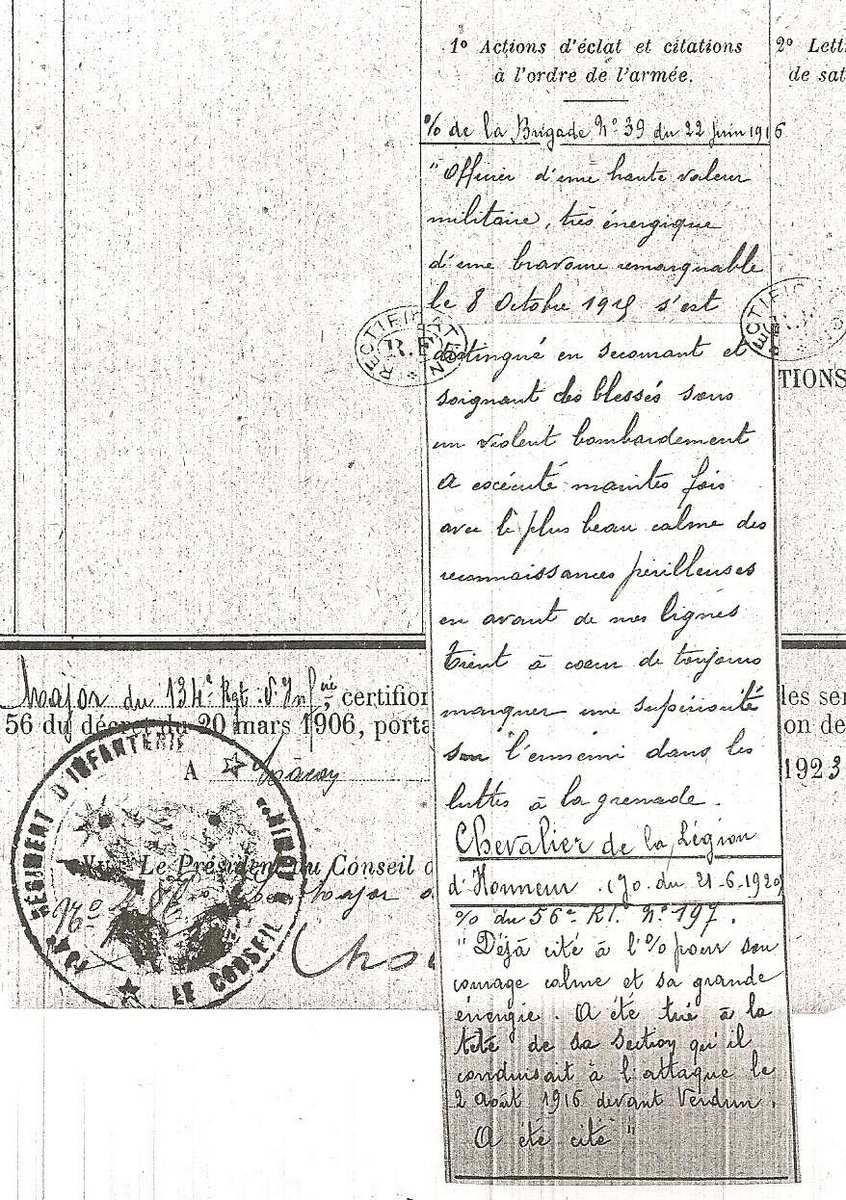 1° Actions d'éclat et citations
à l'ordre de l'armée.
2° Lett
de sat
% de la Brigade N° 39 du 22 Juin 1916
"Officier d'une haute valeur
militaire, très énergique
d'une bravoure remarquable
le 8 Octobre 1915 s'est
RECTIFICATION R.F.
RECTIFIC
distingué en secourant et
soignant des blessés sous
TIONS
un violent bombardement
A exécuté maintes fois
avec le plus beau calme des
reconnaissances périlleuses
en avant de nos lignes
Tient à coeur de toujours
marquer une supériorité
sur l'ennemi dans les
luttes à la grenade.
Major du 134e Rgt d'Infrie, certifion
les ser
56 du décret du 20 mars 1906, porta
on de
A Mâcon
1923
Vu : Le Président du Conseil d
RÉGIMENT D'INFANTERIE
LE CONSEIL D'ADMIN
Chevalier de la Légion
d'Honneur. (Jo. du 21-6-1920)
% du 56e R.I. N° 197.
"Déjà cité à l'% pour son
courage calme et sa grande
énergie. A été tué à la
tête de sa section qu'il
conduisait à l'attaque le
2 août 1916 devant Verdun.
A été cité"